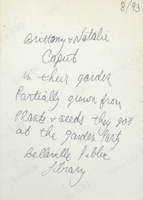 8/93
Brittany & Natalie
Caput
in their garden
Partially grown from
Plants & seeds they got
at the Garden Party
Belleville Public
Library